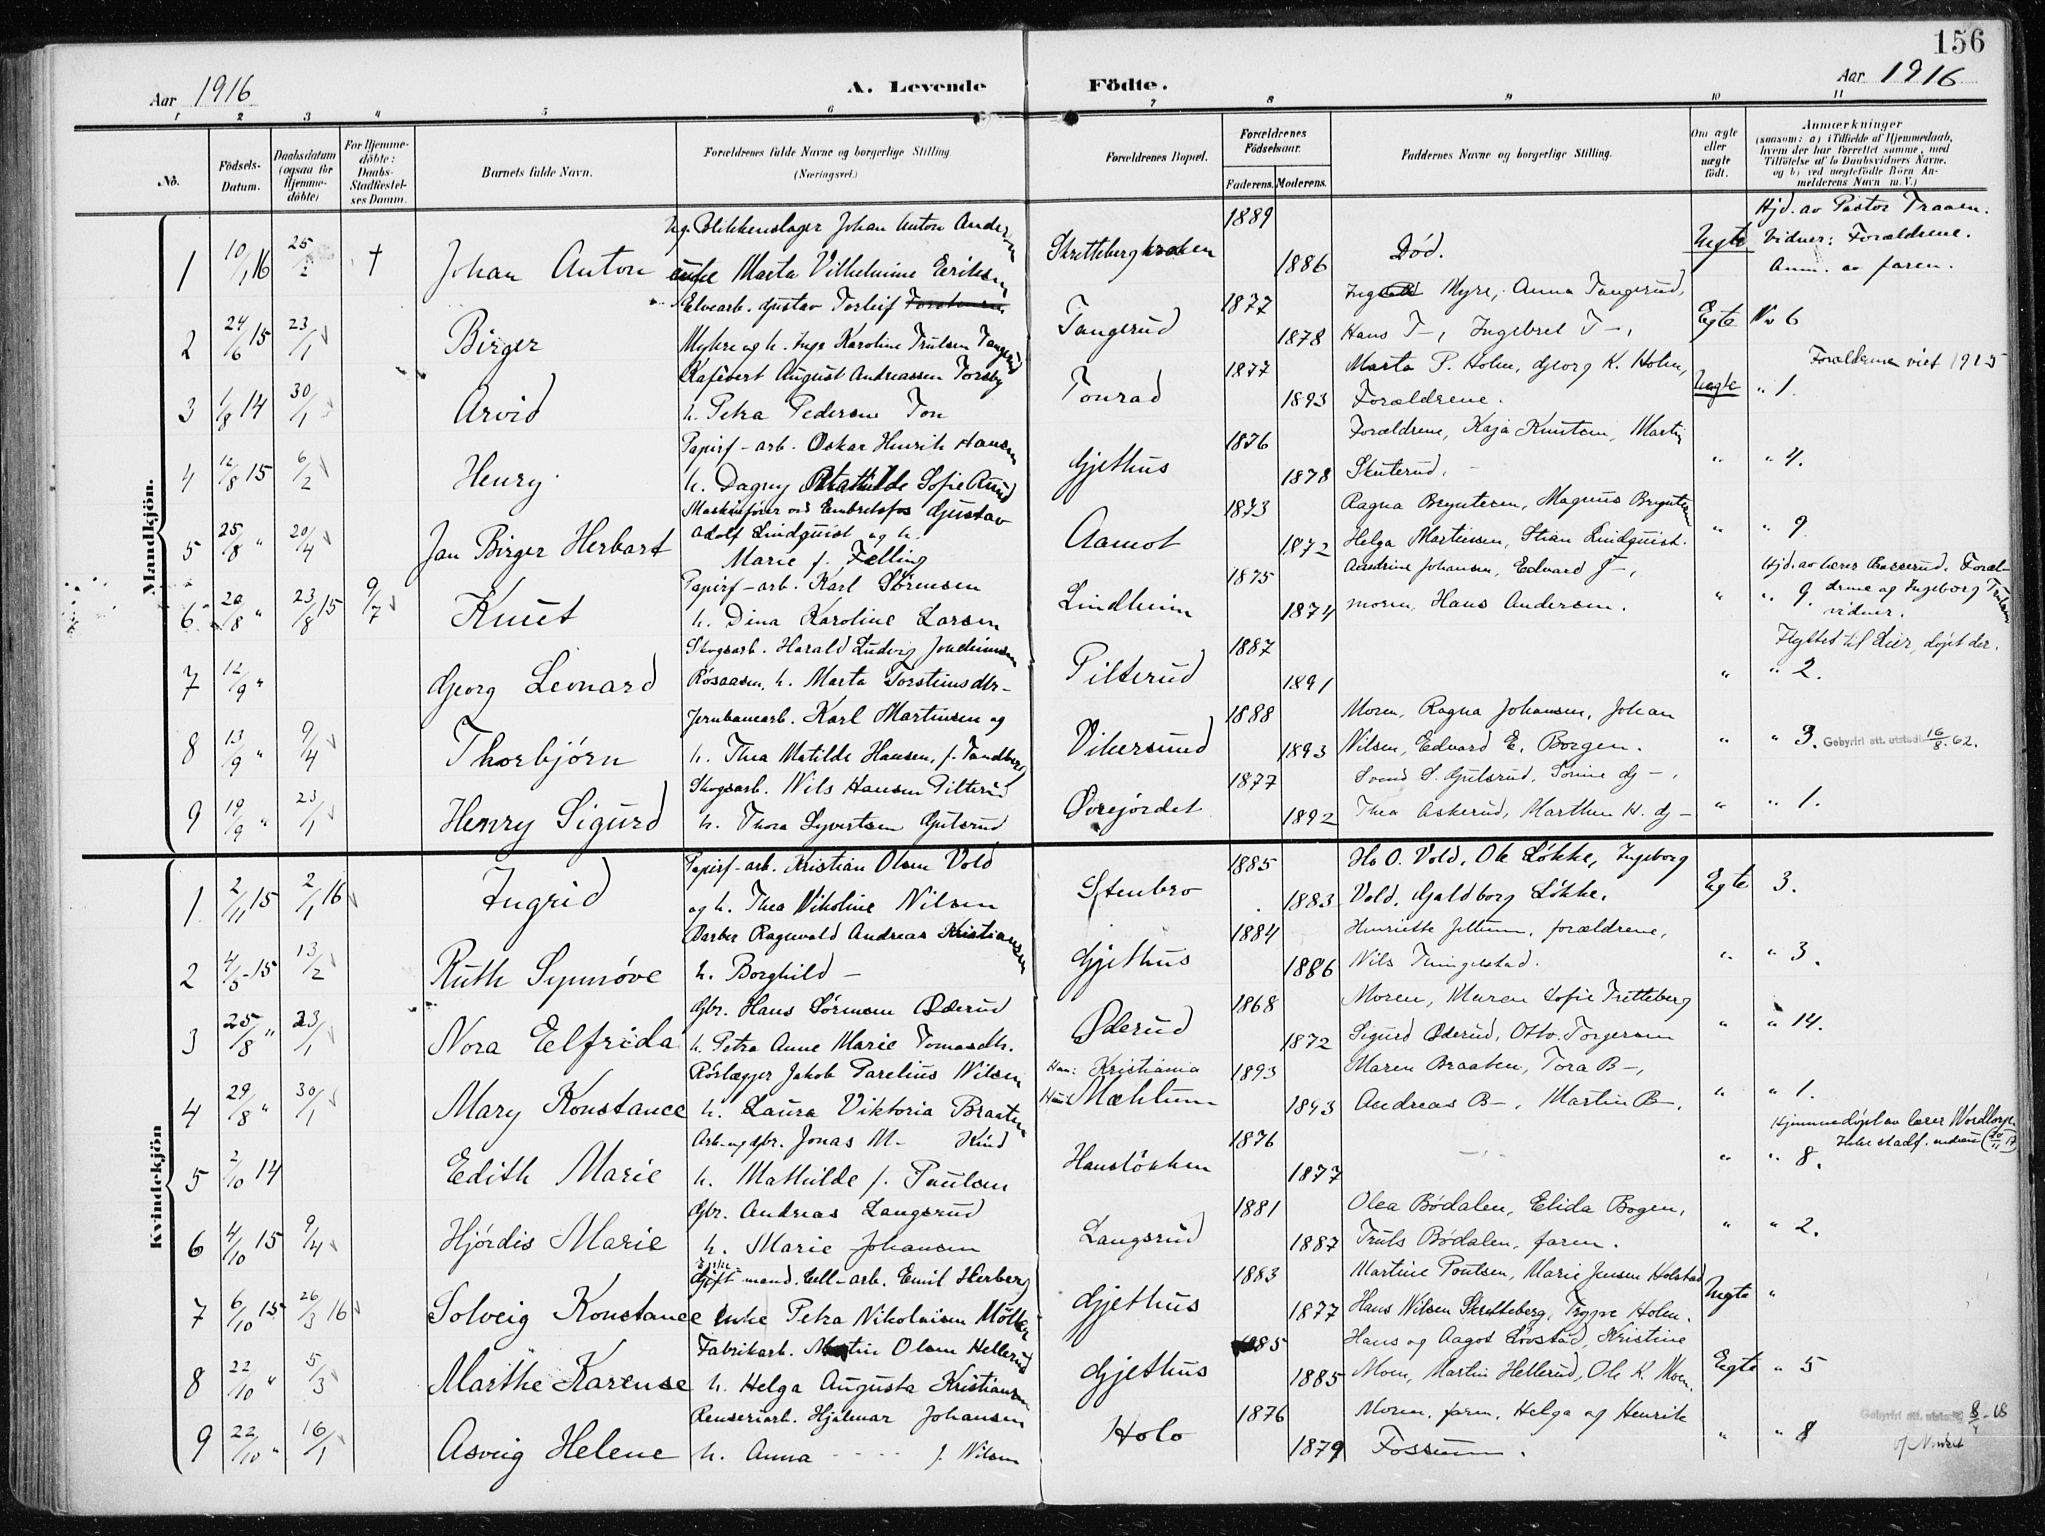 156
Aar 1916
A. Levende Födte.
Aar 1916
1 2 3 4 5 6 7 8 9 10 11
No.
Födsels-Datum.
Daabsdatum (ogsaa for Hjemme-döbte)
For Hjemme-döbte: Daabs-Stadfæstel-ses Datum.
Barnets fulde Navn.
Forældrenes fulde Navne og borgerlige Stilling. (Næringsvei.)
Forældrenes Bopæl.
Forældrenes Födselsaar.
Faderens. Moderens.
Faddernes Navne og borgerlige Stilling.
Om ægte eller uægte födt.
Anmærkninger (saasom: a) i Tilfælde af Hjemmedaab, hvem der har forrettet samme, med Tilföielse af to Daabsvidners Navne. og b) ved uægtefödte Börn An-melderens Navn m. V.)
Mandkjön.
1 10/1 16 25/2 † Johan Anton
Ug. Blikkenslager Johan Anton Andersen
enke Marta Vilhelmine Eriksen
Skretteberg 1889 1886 Død. Uegte
Hjd. av Pastor Traaen.
Vidner: Forældrene.
Anm. av faren.
2 24/6 15 23/1 Birger
Elvearb. Gustav Torleif
Myhre og h. Inga Karoline Trulsen Tangerud
Tangerud 1877 1878
Myre, Anna Tangerud,
Hans T-, Ingebret T-, Egte No 6
3 1/8 14 30/1 Arvid
August Andreassen Torsby
h. Petra Pedersen Ton
Tonrad 1877 1893
Marta P. Holm, Georg K. Holm,
Forældrene. Uegte " 1.
Forældrene viet 1915
4 12/8 15 6/2 Henry
Papirf-arb. Oskar Henrik Hansen
h. Dagny Mathilde Sofie Ruud
Gjethus 1876 1878
Forældrene, Kaja Knutsen, Martin
Skuterud. " " 4.
5 25/8 " 20/4 Jan Birger Herbart
Maskinfører ved Embretsfos Gustav
Adolf Lindquist og h.
Marie f. Felling
Aamot 1873 1872
Ragna Bryntesen, Magnus Bryntesen
Helga Martinsen, Stian Lindquist. " " 9.
6 20/8 " 23/8 15 9/7 Knut
Papirf-arb. Karl Sørensen
h. Dina Karoline Larsen
Lindheim 1875 1874
Andrine Johansen, Edvard J-,
moren, Hans Andersen. " " 9
Hjd. av lærer Forældrene og Ingeborg Trulsen
vidner.
7 12/9 " Georg Leonard
Skogsarb. Harald Ludvig Joachimsen
Røsaasen, h. Marta Torsteinsdtr-
Pilterud 1887 1891 " " 2.
Flyttet til Lier, døpt der.
8 13/9 " 9/4 Thorbjørn
Jernbanearb. Karl Martinsen og
h. Thea Matilde Hansen, f. Tandberg
Vikersund 1888 1893
Moren, Ragna Johansen, Johan
Nilsen, Edvard E. Borgen. " " 3.
Gebyrfri att. utstedt 16/8. 62.
9 19/9 " 23/1 Henry Sigurd
Skogsarb. Nils Hansen Pilterud
h. Thora Syvertsen Gulsrud
Ovrejordet 1877 1892
Svend S. Gulsrud, Sorine G-,
Thea Askerud, Marthen H. G- " " 1.
Kvindekjön
1 2/11 15 2/1 16 Ingrid
Papirf-arb. Kristian Olsen Vold
og h. Thea Nikoline Nilsen
Stenbro 1885 1883
Ole Løkke, Ingeborg
Vold, Galdborg Løkke. Egte 3.
2 4/5 15 13/2 Ruth Synnøve
Barber Ragnvald Andreas Kristiansen
h. Borghild -
Gjethus 1884 1886
Henriette Jellum, forældrene,
Nils Tingelstad. " " 3.
3 25/8 " 23/1 Nora Elfrida
Gbr. Hans Sørensen Øderud
h. Petra Anne Marie Tomasdtr.
Øderud 1868 1872
Moren, Maren Sofie Tretteberg
Sigurd Øderud, Otto Torgersen " " 14.
4 29/8 " 30/1 Mary Konstance
Rörlægger Jakob Parelius Nilsen
h. Laura Viktoria Braaten
Han: Kristiania
Hun: Mæhlum 1893 1893
Maren Braaten, Tora B-,
Andreas B-, Martin B-, " " 1.
5 2/10 14 Edith Marie
Arb. og gbr. Jonas M. Kind
h. Mathilde f. Paulsen
Hansløkken 1876 1877 " " 8.
Hjemmedøpt av lærer Nordtorp.
Ikke stadf.
6 4/10 15 9/4 Hjördis Marie
Gbr. Andreas Langsrud
h. Marie Johansen
Langsrud 1881 1887
Olea Bødalen, Elida Bogen,
Truls Bødalen, faren. " " 2.
7 6/10 15 26/3 16 Solveig Konstance
Gift mand. Cell-arb. Emil Herberg
enke Petra Nikolaisen Möller
Gjethus 1883 1877
Martine Poulsen, Marie Jensen Holstad
Hans Nilsen Skretteberg, Trygve Holm. Uegte "
8 22/10 " 5/3 Marthe Karense
Fabrikarb. Martin Olsen Hellerud
h. Helga Augusta Kristiansen
Gjethus 1885 1885
Hans og Aagot Lovstad, Kristine
Moen, Martin Hellerud, Ole K. Moen. Egte " 5
9 22/10 " 16/1 Asveig Helene
Renseriarb. Hjalmar Johansen
h. Anna - - - f. Nilsen
Holo 1876 1879
Moren, faren, Helga og Henrik
Fossum. " " 8
Gebyrfri att. utstedt